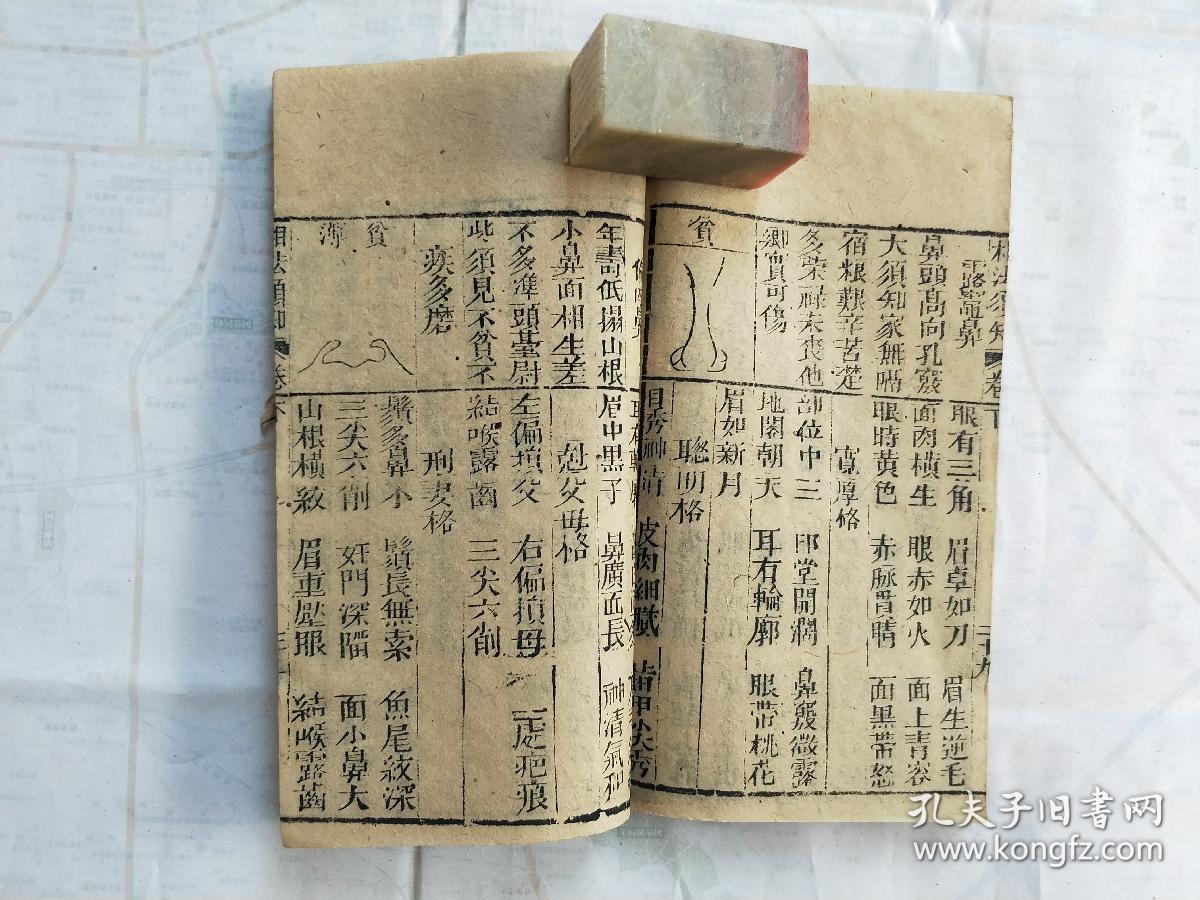 相法須知 卷下
露竈鼻
鼻頭高向孔竅
大須知家無隔
宿粮艱辛苦楚
多業祿未喪他
鄉實可傷
貧
眼有三角 眉卓如刀 眉生逆毛
面肉橫生 眼赤如火 面上青容
眼時黄色 赤脉貫睛 面黑帶怒
寬厚格
部位中三 印堂開濶 鼻竅微露
地閣朝天 耳有輪廓 眼帶桃花
眉如新月
聰明格
相秀神清 皮肉細膩 指甲尖秀
年壽低搨山根
小鼻面相生差
不多準頭臺尉
此須見不貧不
疾多磨
貧薄
眉中黒子 鼻廣面長 神清氣和
尅父母格
左偏損父 右偏損母 一處疤痕
結喉露齒 三尖六削
刑妻格
鬚多鼻小 鬚長無索 魚尾紋深
三尖六削 奸門深陷 面小鼻大
山根橫紋 眉重壓眼 結喉露齒
孔夫子旧书网
www.kongfz.com